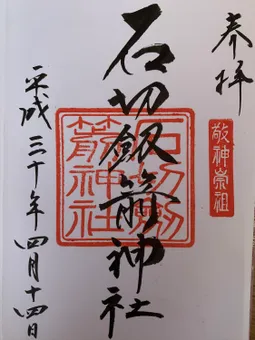 奉拝
敬神崇祖
石切劔箭神社
石切劔箭神社
平成三十年四月十四日